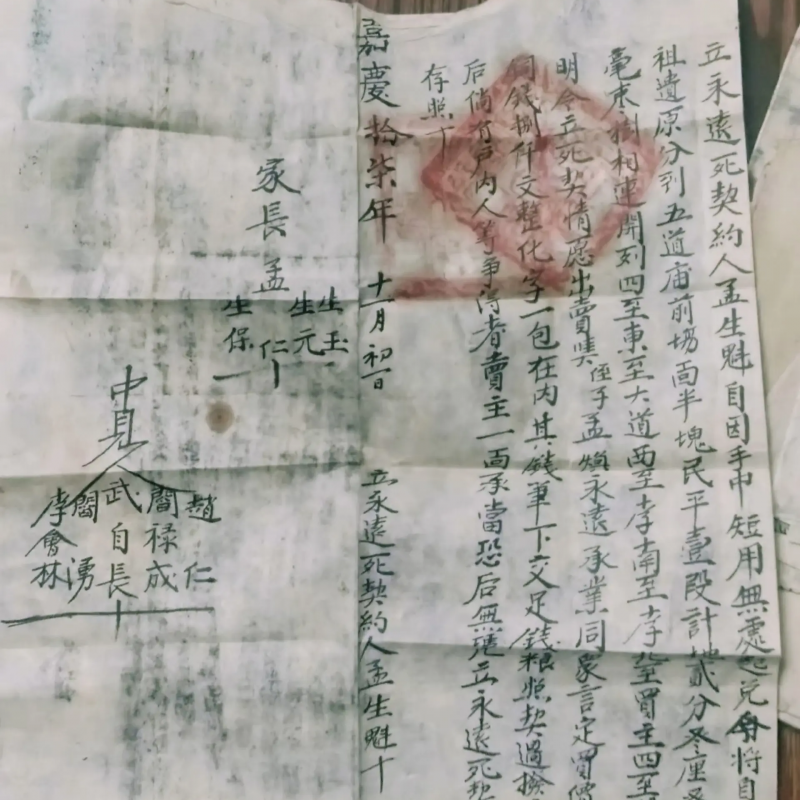 立永遠死契約人孟生魁自因手中短用無處起兌今將自
祖遺原分到五道庙前塲面半塊民平壹段計地貳分叁座叁
毫東樹相連開列四至東至大道西至李南至李北至買主四至
明今立死契情愿出賣與侄子孟煥永遠承業同衆言定買價
銅錢捌仟文整化字一包在内其錢筆下交足錢粮照契過撥
后倘有戶内人等爭淂者賣主一面承當恐后無凴立永遠死契
存照十
嘉慶拾柒年 十一月初一日 立永遠死契約人孟生魁十
家長孟 生玉 生元 仁 生保 十
中見人 趙仁 閻禄成 武自長 閻湧 李會林 十